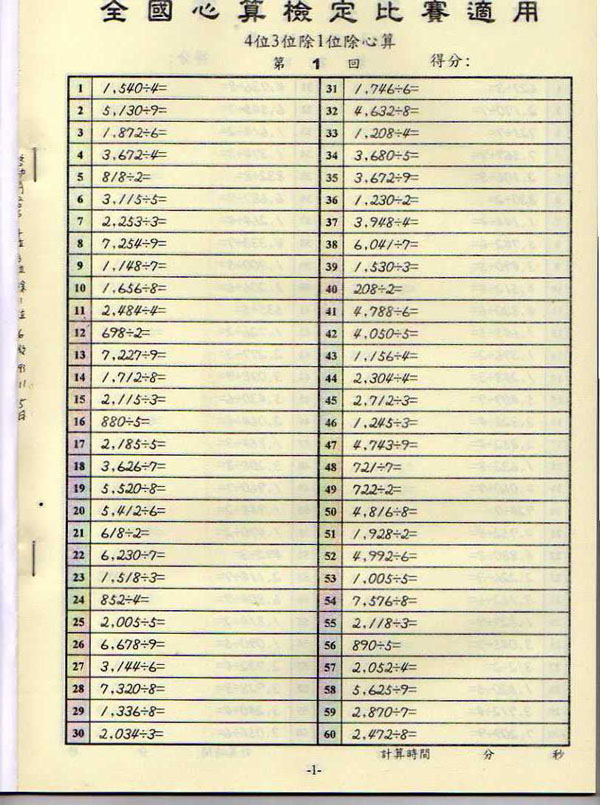 全國心算檢定比賽適用
4位3位除1位除心算
第 1 回 得分:
1 1,540÷4=
2 5,130÷9=
3 1,872÷6=
4 3,672÷4=
5 818÷2=
6 3,115÷5=
7 2,253÷3=
8 7,254÷9=
9 1,148÷7=
10 1,656÷8=
11 2,484÷4=
12 698÷2=
13 7,227÷9=
14 1,712÷8=
15 2,115÷3=
16 880÷5=
17 2,185÷5=
18 3,626÷7=
19 5,520÷8=
20 5,412÷6=
21 618÷2=
22 6,230÷7=
23 1,518÷3=
24 852÷4=
25 2,005÷5=
26 6,678÷9=
27 3,144÷6=
28 7,320÷8=
29 1,336÷8=
30 2,034÷3=
31 1,746÷6=
32 4,632÷8=
33 1,208÷4=
34 3,680÷5=
35 3,672÷9=
36 1,230÷2=
37 3,948÷4=
38 6,041÷7=
39 1,530÷3=
40 208÷2=
41 4,788÷6=
42 4,050÷5=
43 1,156÷4=
44 2,304÷4=
45 2,712÷3=
46 1,245÷3=
47 4,743÷9=
48 721÷7=
49 722÷2=
50 4,816÷8=
51 1,928÷2=
52 4,992÷6=
53 1,005÷5=
54 7,576÷8=
55 2,118÷3=
56 890÷5=
57 2,052÷4=
58 5,625÷9=
59 2,870÷7=
60 2,472÷8=
計算時間 分 秒
-1-